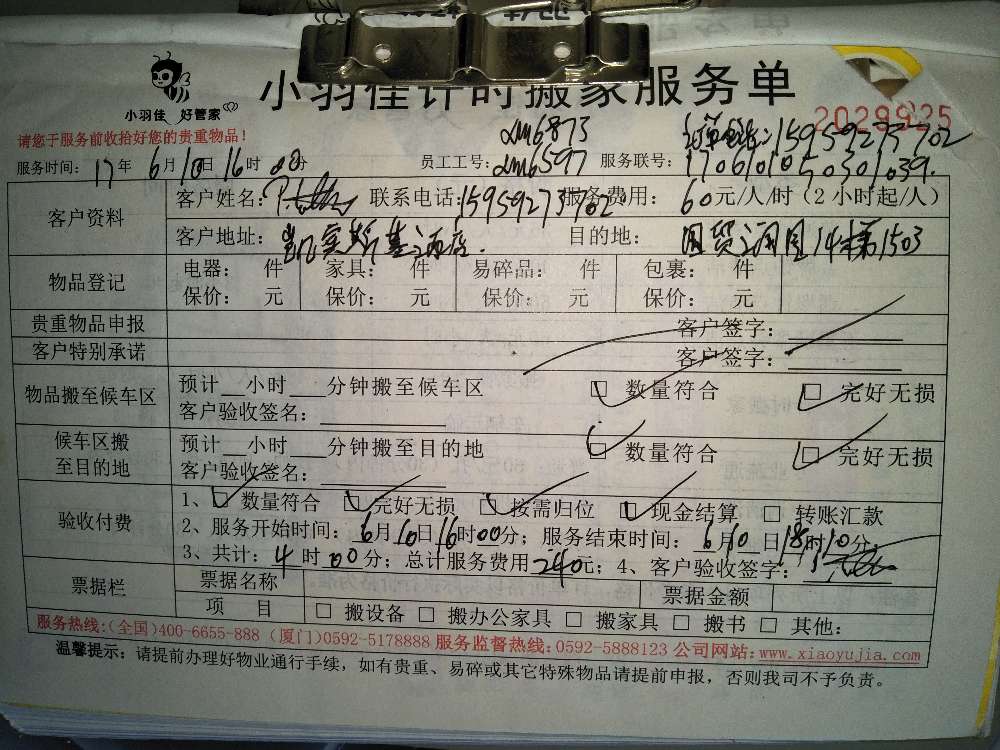 小羽佳计时搬家服务单
小羽佳 好管家
2029925
请您于服务前收拾好您的贵重物品！
xm6873
15959273702
服务时间：17年6月10日16时00分 员工工号：xm6597 服务联号：170601050301039
客户资料 客户姓名： 联系电话：15959273702 服务费用：60元/人/时（2小时起/人）
客户地址：凯宾斯基酒店. 目的地：国贸润园14梯1503
物品登记 电器： 件 家具： 件 易碎品： 件 包裹： 件
保价： 元 保价： 元 保价： 元 保价： 元
贵重物品申报 客户签字：
客户特别承诺 客户签字：
物品搬至候车区 预计__小时___分钟搬至候车区 ☑ 数量符合 ☑ 完好无损
客户验收签名：
候车区搬至目的地 预计__小时___分钟搬至目的地 ☑ 数量符合 ☑ 完好无损
客户验收签名：
验收付费 1、☑ 数量符合 ☑ 完好无损 ☑ 按需归位 ☑ 现金结算 □ 转账汇款
2、服务开始时间：6月10日16时00分；服务结束时间：6月10日18时10分
3、共计：4时00分；总计服务费用240元；4、客户验收签字：
票据栏 票据名称 票据金额
项 目 □ 搬设备 □ 搬办公家具 □ 搬家具 □ 搬书 □ 其他：
服务热线：(全国)400-6655-888 (厦门)0592-5178888 服务监督热线：0592-5888123 公司网站：www.xiaoyujia.com
温馨提示：请提前办理好物业通行手续，如有贵重、易碎或其它特殊物品请提前申报，否则我司不予负责。